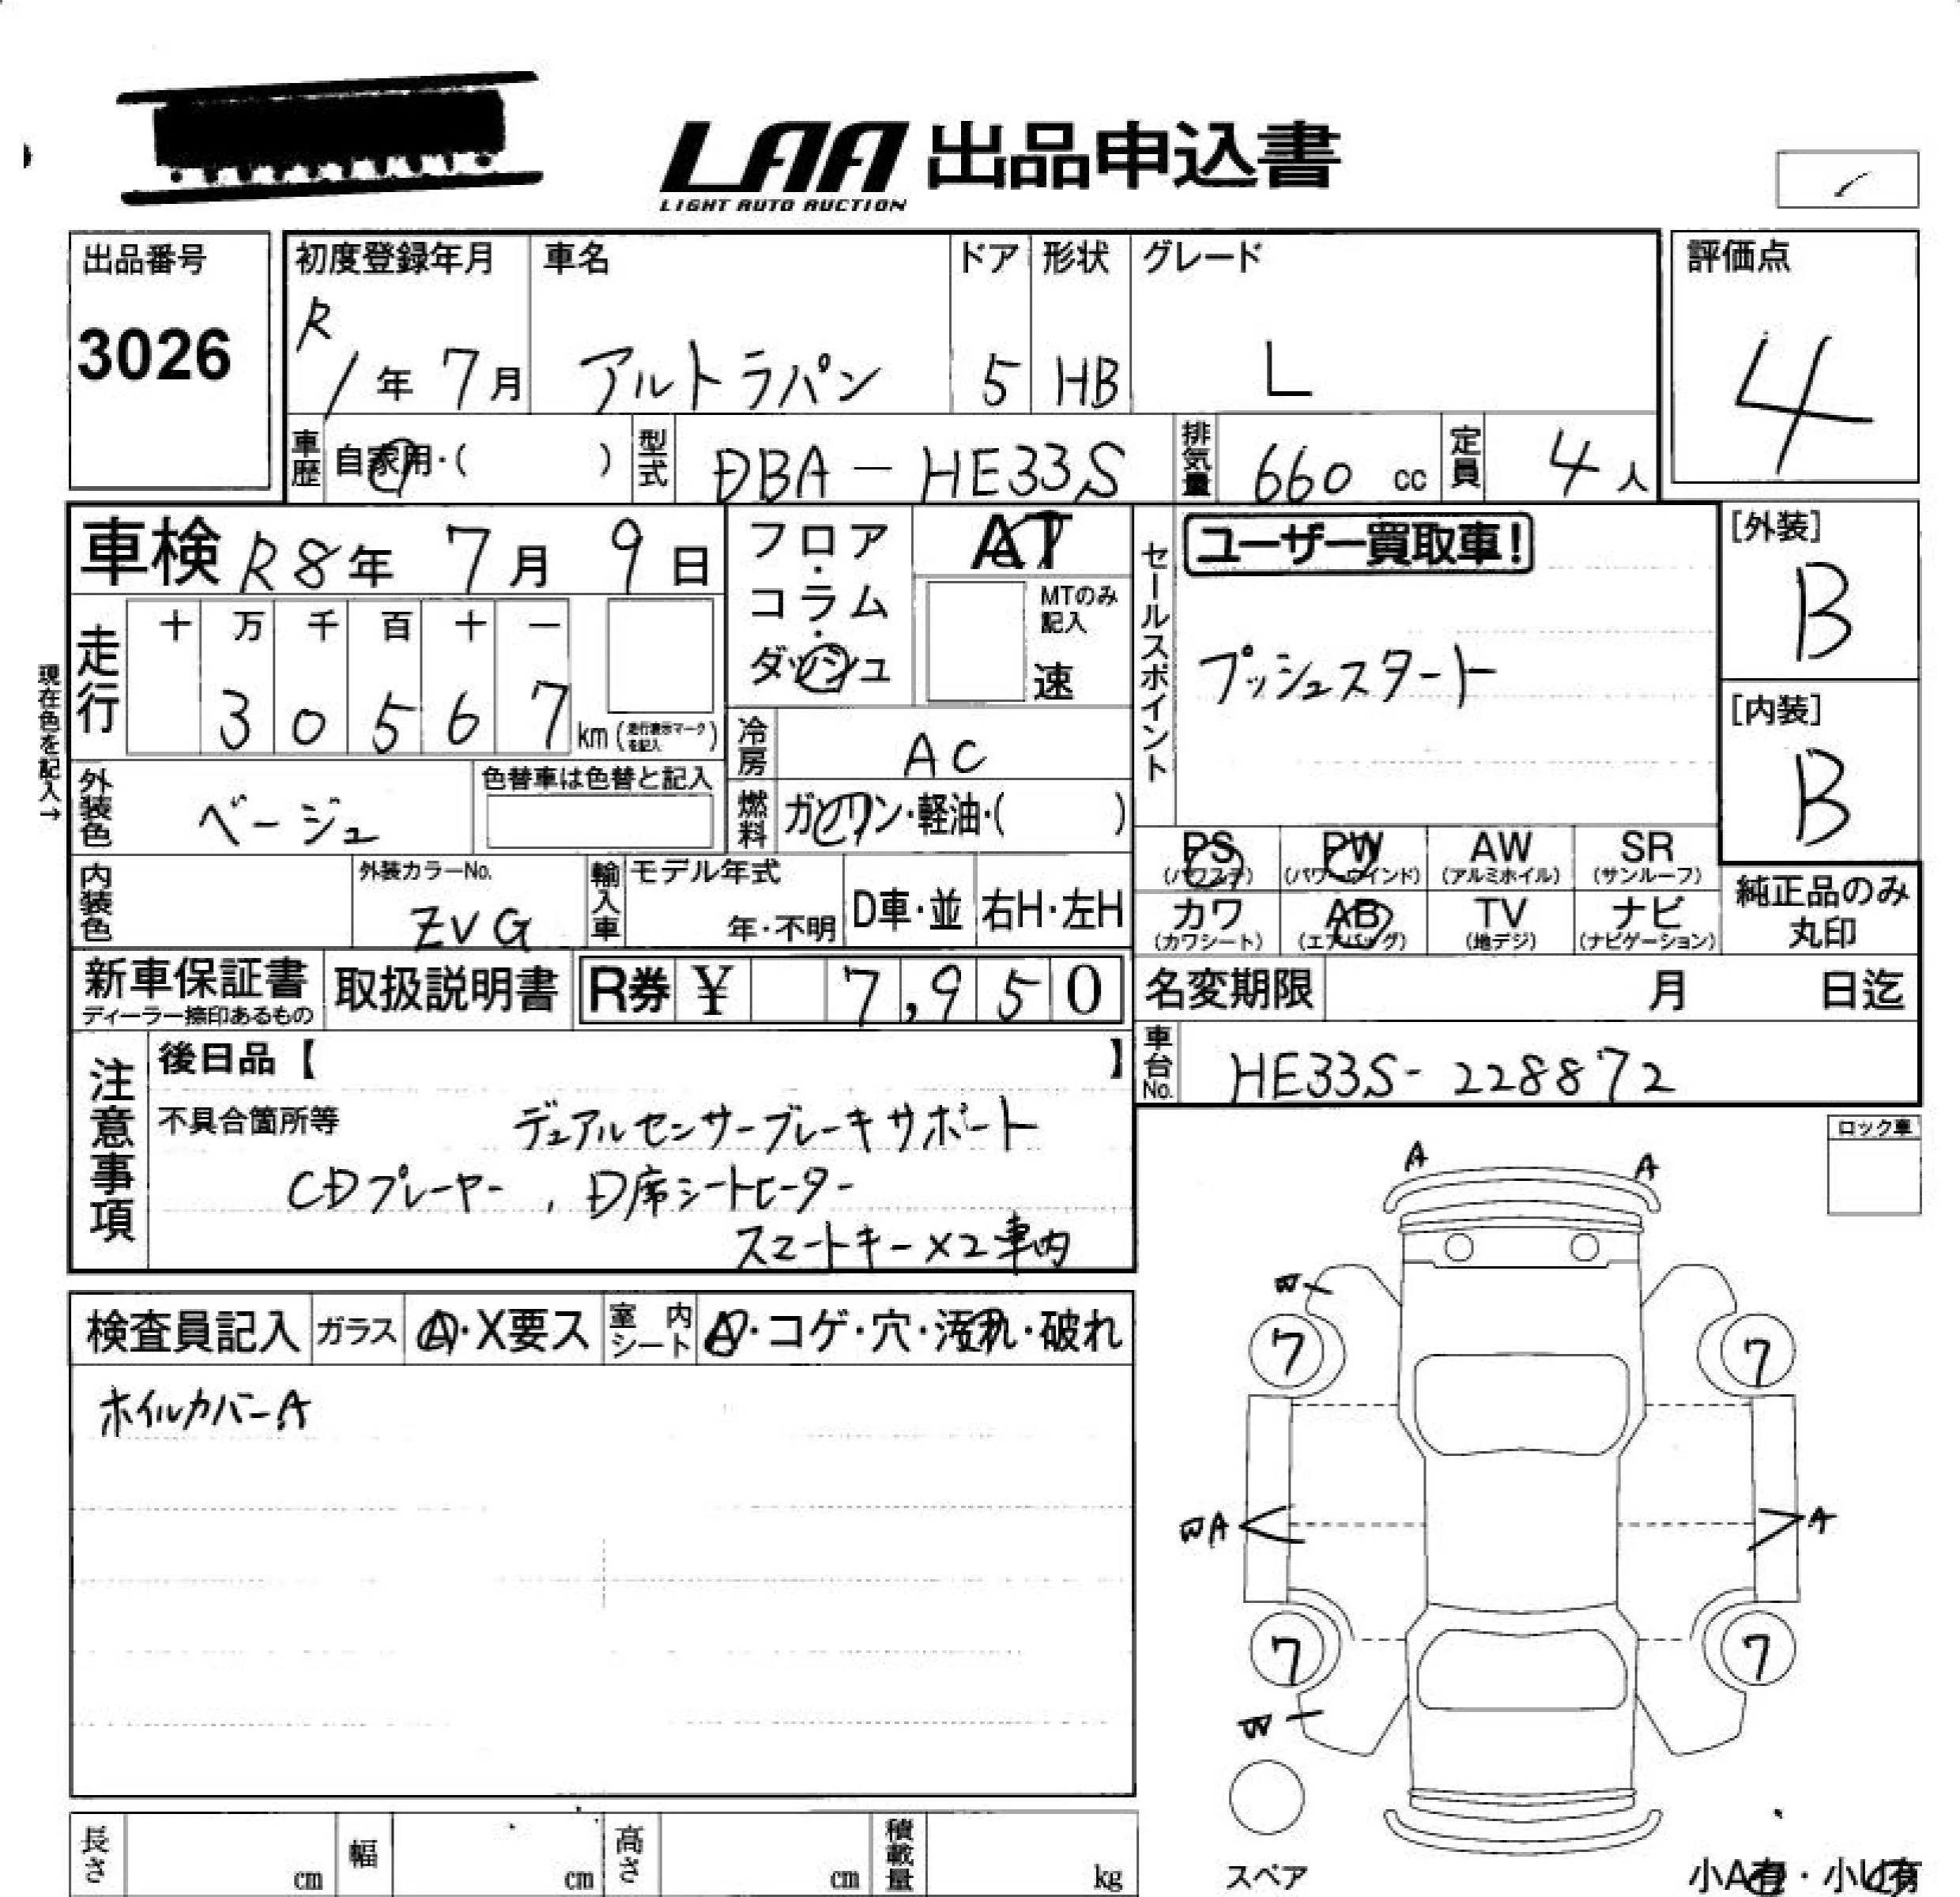 LAA 出品申込書
LIGHT AUTO AUCTION
出品番号
3026
初度登録年月
R1年7月
車名
アルトラパン
ドア
5
形状
HB
グレード
L
評価点
4
車歴 自家用・( )
型式 DBA-HE33S
排気量 660 cc
定員 4人
車検 R8年7月9日
フロア・コラム・ダッシュ
AT
MTのみ記入
速
セールスポイント
ユーザー買取車!
プッシュスタート
[外装]
B
[内装]
B
現在色を記入→
走行
十 万 千 百 十 一
3 0 5 6 7 km (走行表示マークを記入)
冷房 AC
燃料 ガソリン・軽油・( )
外装色 ベージュ
色替車は色替と記入
内装色
外装カラーNo.
ZVG
輸入車
モデル年式
年・不明
D車・並
右H・左H
PS (パワステ)
PW (パワーウインド)
AW (アルミホイル)
SR (サンルーフ)
カワ (カワシート)
AB (エアバッグ)
TV (地デジ)
ナビ (ナビゲーション)
純正品のみ
丸印
新車保証書
ディーラー捺印あるもの
取扱説明書
R券 ¥ 7,950
名変期限 月 日迄
車台No. HE33S-228872
注意事項
後日品【 】
不具合箇所等
デュアルセンサーブレーキサポート
CDプレーヤー , D席シートヒーター
スマートキー×2車内
ロック車
検査員記入
ガラス A・X要ス
室内シート A・コゲ・穴・汚れ・破れ
ホイルカバーA
A A
W
7 7
WA A
7 7
W
スペア
長さ cm
幅 cm
高さ cm
積載量 kg
小A有・小U有